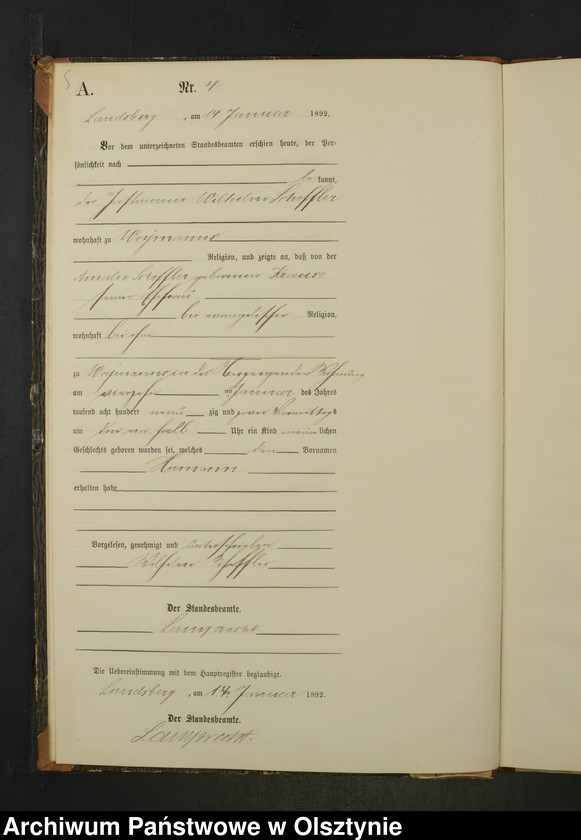 5
A. Nr. 4
Landsberg, am 14 Januar 1892.
Vor dem unterzeichneten Standesbeamten erschien heute, der Per-
sönlichkeit nach
be kannt,
der Wilhelm Scheffler
wohnhaft zu Worjmanns
Religion, und zeigte an, daß von der
Amalie Scheffler geborenen Krause
seiner Ehefrau
bei evangelischer Religion,
wohnhaft bei ihm
zu in der Wohnung
am vierzehn ten Januar des Jahres
tausend acht hundert neun zig und zwei Vormittags
um ein halb Uhr ein Kind männ lichen
Geschlechts geboren worden sei, welches den Vornamen
Hermann
erhalten habe
Vorgelesen, genehmigt und unterschrieben
Wilhelm Scheffler
Der Standesbeamte.
Lamprecht
Die Uebereinstimmung mit dem Hauptregister beglaubigt.
Landsberg, am 14. Januar 1892.
Der Standesbeamte.
Lamprecht.
Archiwum Państwowe w Olsztynie